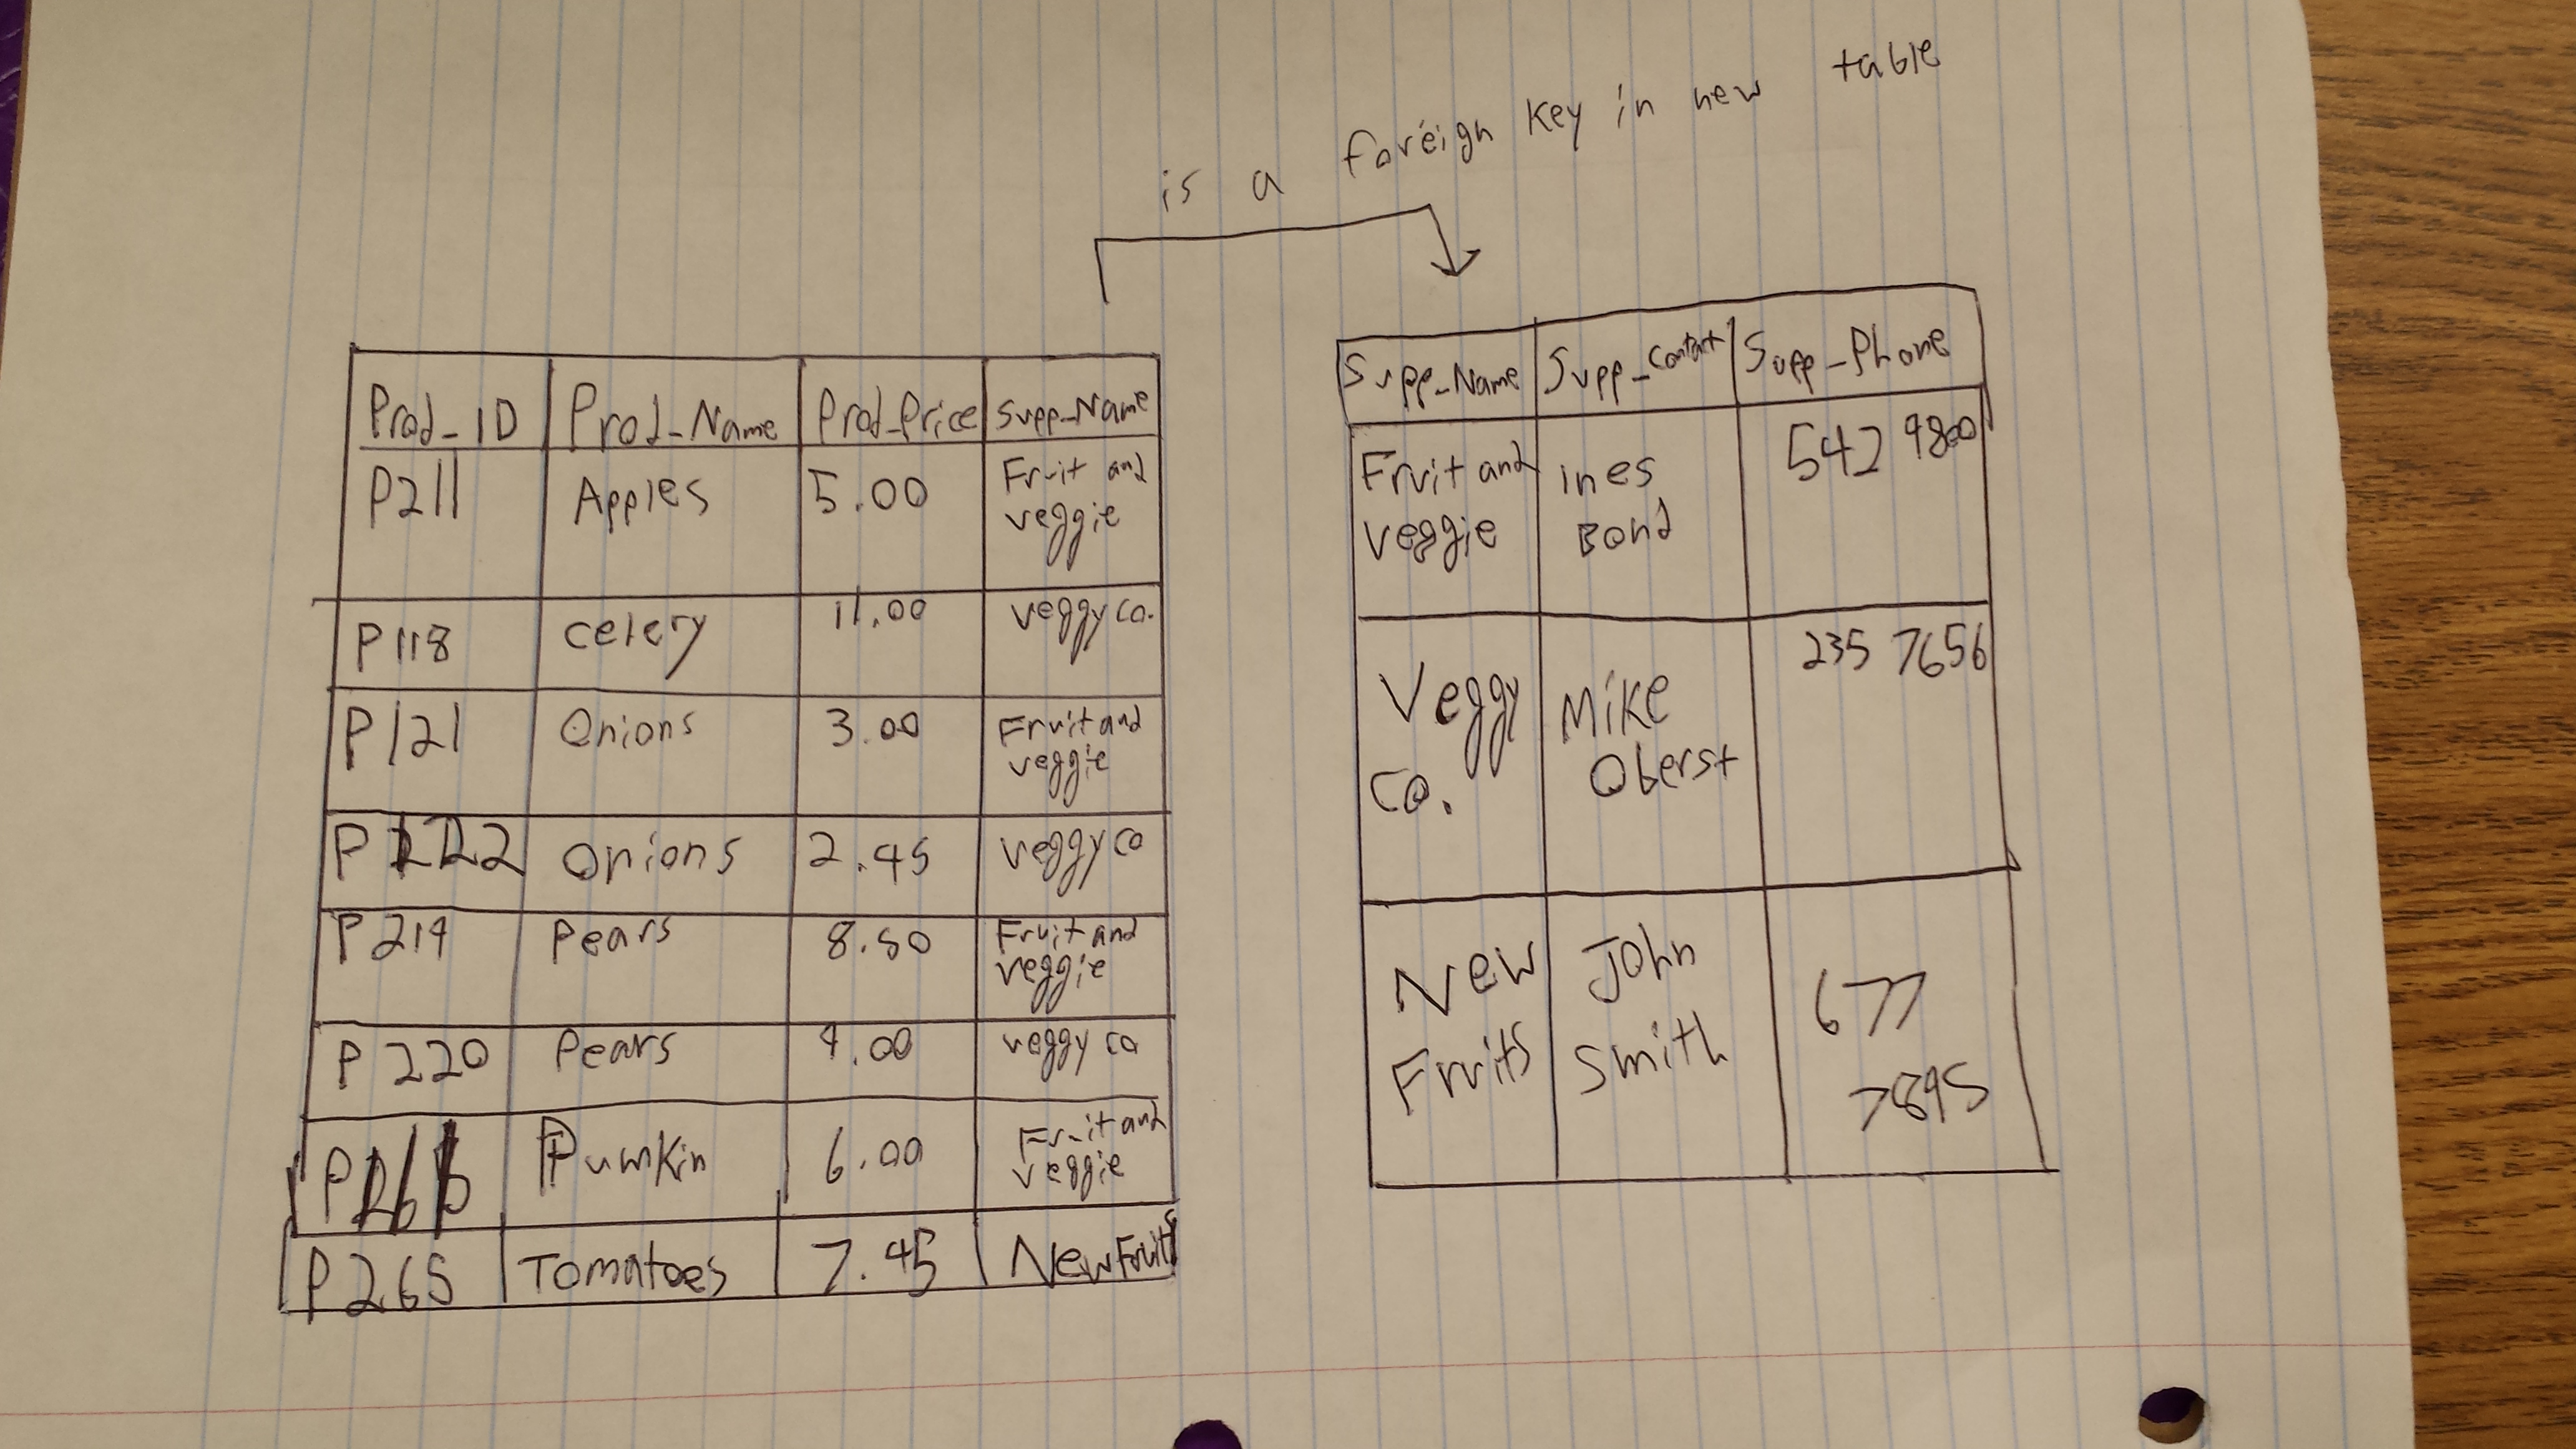 is a foreign key in new table
Prod_ID Prod_Name Prod_Price Supp_Name
P211 Apples 5.00 Fruit and
veggie
P118 celery 11.00 veggy co.
P121 Onions 3.00 Fruit and
veggie
Onions 2.45 veggy co
P214 Pears 8.50 Fruit and
veggie
P220 Pears 4.00 veggy co
Pumkin 6.00 Fruit and
veggie
P265 Tomatoes 7.45 New Fruits
Supp_Name Supp_Contact Supp_Phone
Fruit and ines 542 9800
veggie Bond
235 7656
Veggy Mike
Co. Oberst
New John 677
Fruits Smith 7895